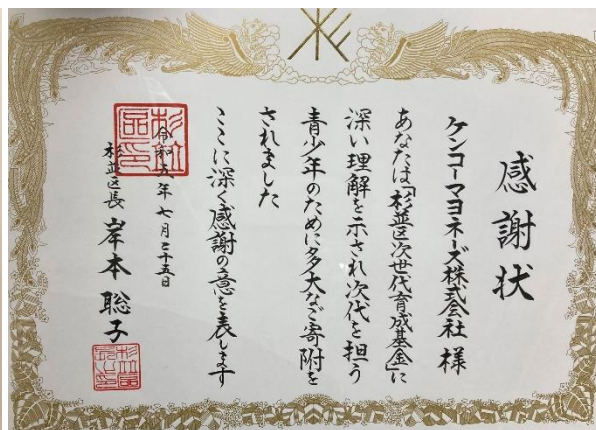 感謝状
ケンコーマヨネーズ株式会社 様
あなたは「杉並区次世代育成基金」に
深い理解を示され次代を担う
青少年のために多大なご寄附を
されました
ここに深く感謝の意を表します
令和五年七月二十五日
杉並区長 岸本聡子
杉並区印